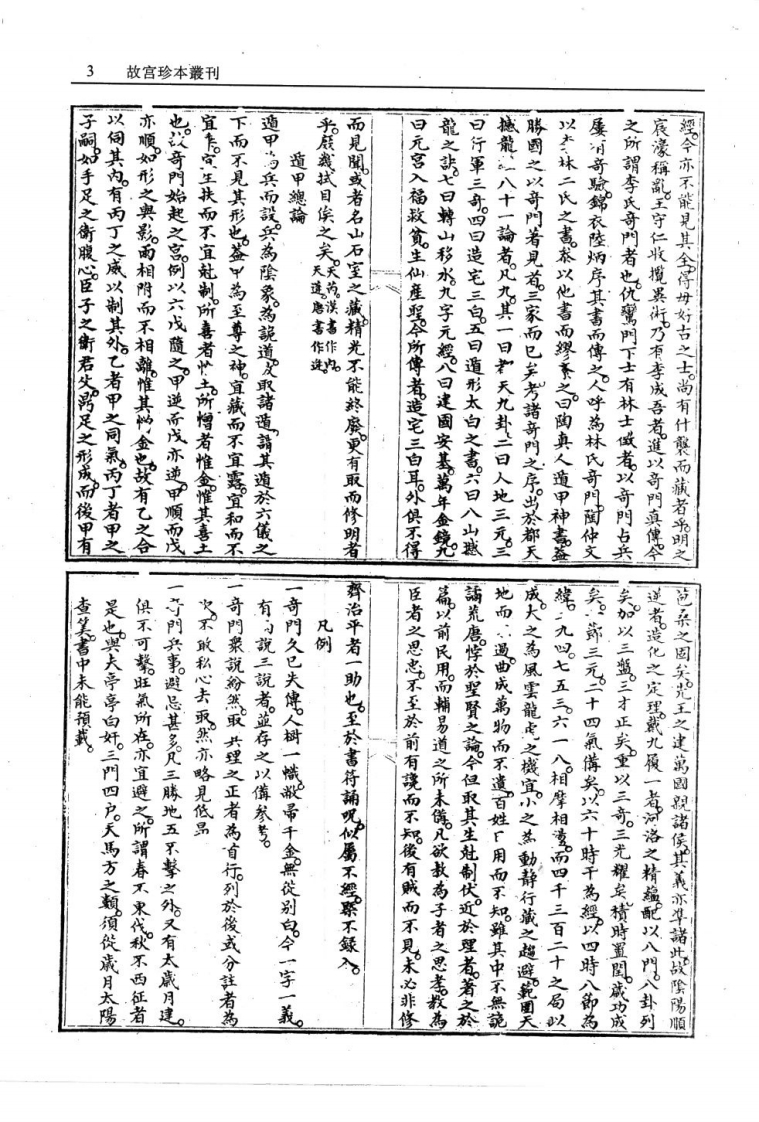 3 故宫珍本叢刊
經今亦不能見其全得毋好古之士尚有什襲而藏者乎明之
宸濠稱亂王守仁收攬異術乃有李成吾者進以奇門真傳今
之所謂李氏奇門者也仇鸞門下士有林士徵者以奇門占兵
屢有奇驗錦衣陸炳序其書而傳之人呼為林氏奇門陶仲文
以李林二氏之書叅以他書而繆紊之曰陶真人遁甲神書蓋
勝國之以奇門著見者三家而已矣考諸奇門之序出於都天
撼龍八十一論者凡九其一曰天九卦二曰人地三元三
曰行軍三奇四曰造宅三白五曰遁形太白之書六曰八山撼
龍之訣七曰轉山移水九字元經八曰建國安基萬年金鏡九
曰元宮入福救貧生仙產聖今所傳者造宅三白耳外俱不得
而見聞或者名山石室之藏精光不能終廢更有取而修明者
乎庶幾拭目俟之矣天芮漢書作內天道唐書作逃
遁甲總論
遁甲為兵而設兵為陰象為詭道故取諸遁謂其遁於六儀之
下而不見其形也蓋甲為至尊之神宜藏而不宜露宜和而不
宜乍宜生扶而不宜尅制所喜者惟土所憎者惟金惟其喜土
也故奇門始起之宮例以六戊隨之甲逆而戊亦逆甲順而戊
亦順如形之與影兩相附而不相離惟其憎金也故有乙之合
以伺其內有丙丁之威以制其外乙者甲之同氣丙丁者甲之
子嗣如手足之衛腹心臣子之衛君父鼎足之形成而後甲有
苞桑之固矣先王之建萬國親諸侯其義亦準諸此故陰陽順
逆者造化之定理戴九履一者河洛之精蘊配以八門八卦列
矣加以三盤三才正矣重以三奇三光耀矣積時置閏歲功成
矣一節三元二十四氣備矣以六十時干為經以四時八節為
緯二九四七五三六一八相摩相盪而四千三百二十之局以
成大之為風雲龍虎之機宜小之為動靜行藏之趨避範圍天
地而不過曲成萬物而不遺百姓日用而不知雖其中不無詭
譎荒唐悖於聖賢之論今但取其生尅制伏近於理者著之於
篇以前民用而輔易道之所未備凡欲教為子者之思孝教為
臣者之思忠不至於前有讒而不知後有賊而不見未必非修
齊治平者一助也至於書符誦呪似屬不經槩不錄入
凡例
一奇門久已失傳人樹一幟敝帚千金無從別白今一字一義
有二說三說者並存之以備參考
一奇門衆說紛然取其理之正者為首行列於後或分註者為
次不敢私心去取然亦略見低昂
一奇門兵事避忌甚多凡三勝地五不擊之外又有太歲月建
俱不可擊旺氣所在亦宜避之所謂春不東伐秋不西征者
是也與夫亭亭白奸三門四户天馬方之類須從歲月太陽
查筭書中未能預載